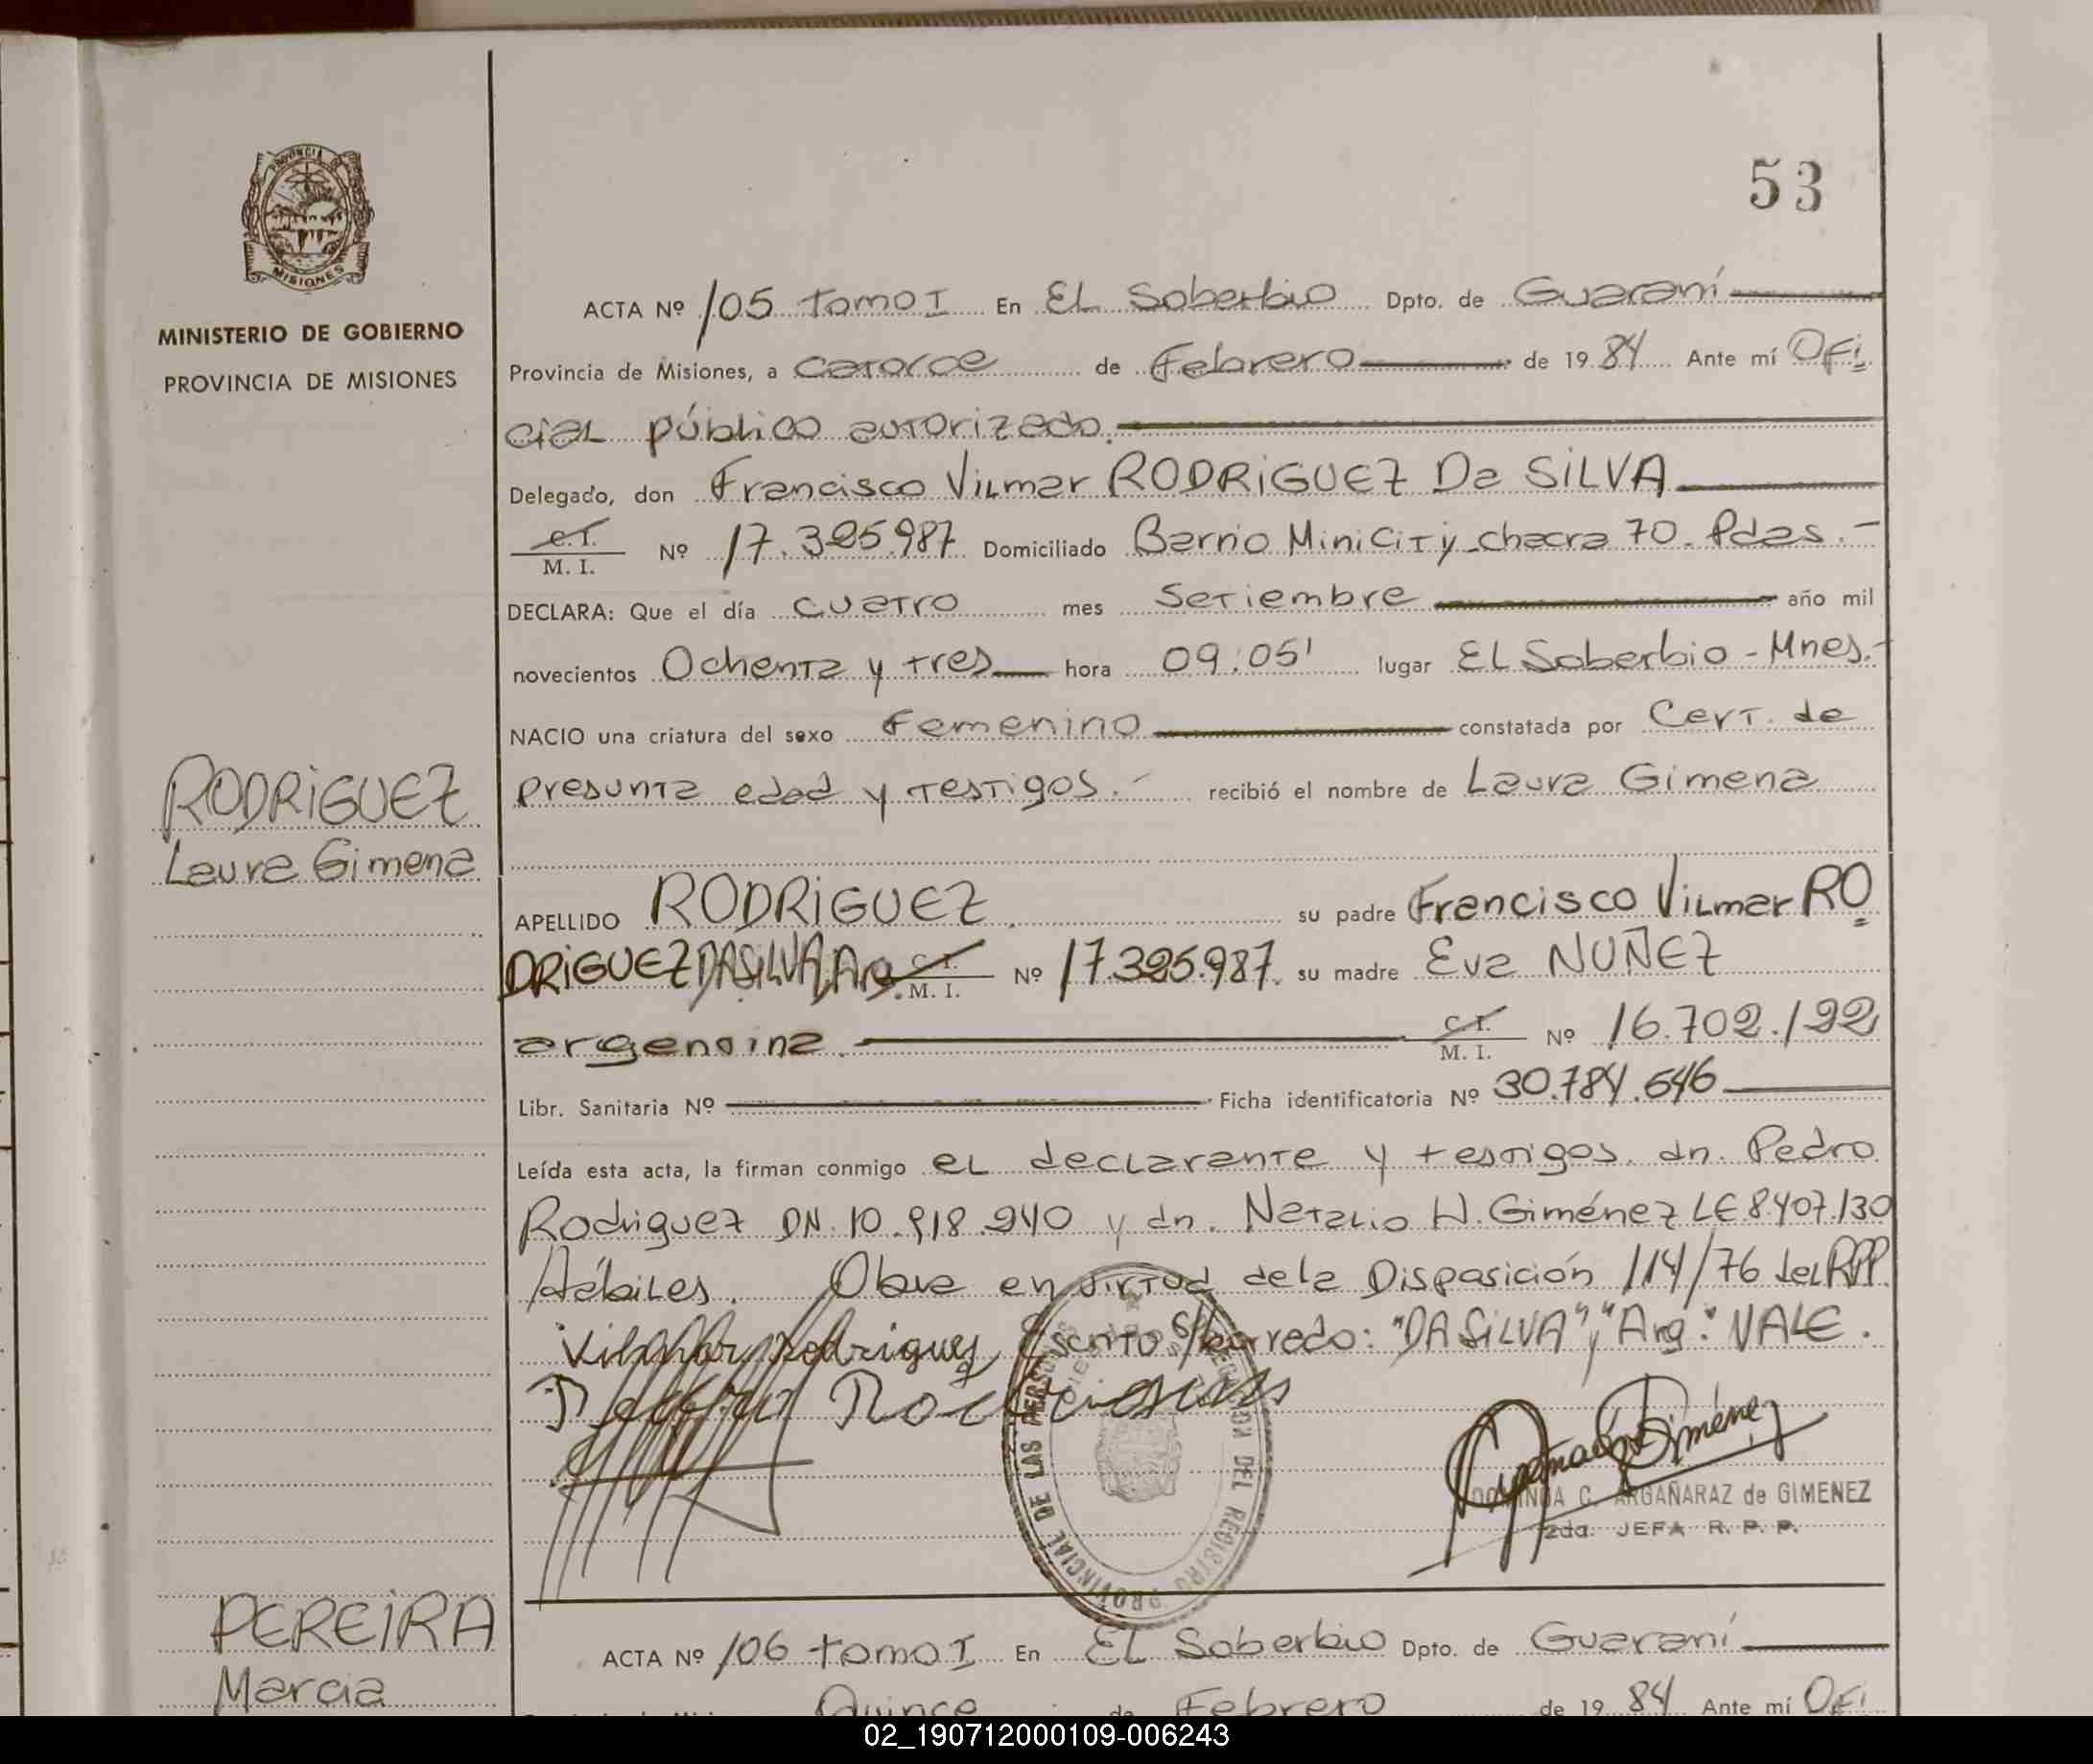 53
PROVINCIA DE
MISIONES
MINISTERIO DE GOBIERNO
PROVINCIA DE MISIONES
ACTA Nº 105 tomo I En EL Soberbio Dpto. de Guaraní
Provincia de Misiones, a catorce de Febrero de 1984 Ante mí Ofi
cial público autorizado.
Delegado, don Francisco Vilmar RODRIGUEZ Da SILVA
C.I. M. I. Nº 17.325.987 Domiciliado Barrio MiniCity chacra 70. Pdas.-
DECLARA: Que el día cuatro mes Setiembre año mil
novecientos Ochenta y tres hora 09:05' lugar EL Soberbio - Mnes.-
NACIO una criatura del sexo Femenino constatada por Cert. de
presunta edad y testigos.- recibió el nombre de Laura Gimena
RODRIGUEZ
Laura Gimena
APELLIDO RODRIGUEZ su padre Francisco Vilmar RO
DRIGUEZ DASILVA, Arg. C.I. M. I. Nº 17.325.987. su madre Eva NUÑEZ
argenoina. C.I. M. I. Nº 16.702.122
Libr. Sanitaria Nº Ficha identificatoria Nº 30.784.646
Leída esta acta, la firman conmigo el declarante y testigos. dn. Pedro
Rodriguez DN. 10.918.240 y dn. Natalio W. Giménez LE 8.407.130
Hábiles. Obra en virtud de la Disposición 114/76 del RPP.
Escrito s/borredo: "DA SILVA", "Arg." VALE.
PROVINCIAL DE LAS PERSONAS
DEL REGISTRO
DOMINGA C. ARGAÑARAZ de GIMENEZ
2da. JEFA R. P. P.
PEREIRA
Marcia
ACTA Nº 106 tomo I En EL Soberbio Dpto. de Guaraní
Quince de Febrero de 1984 Ante mí Ofi
02_190712000109-006243